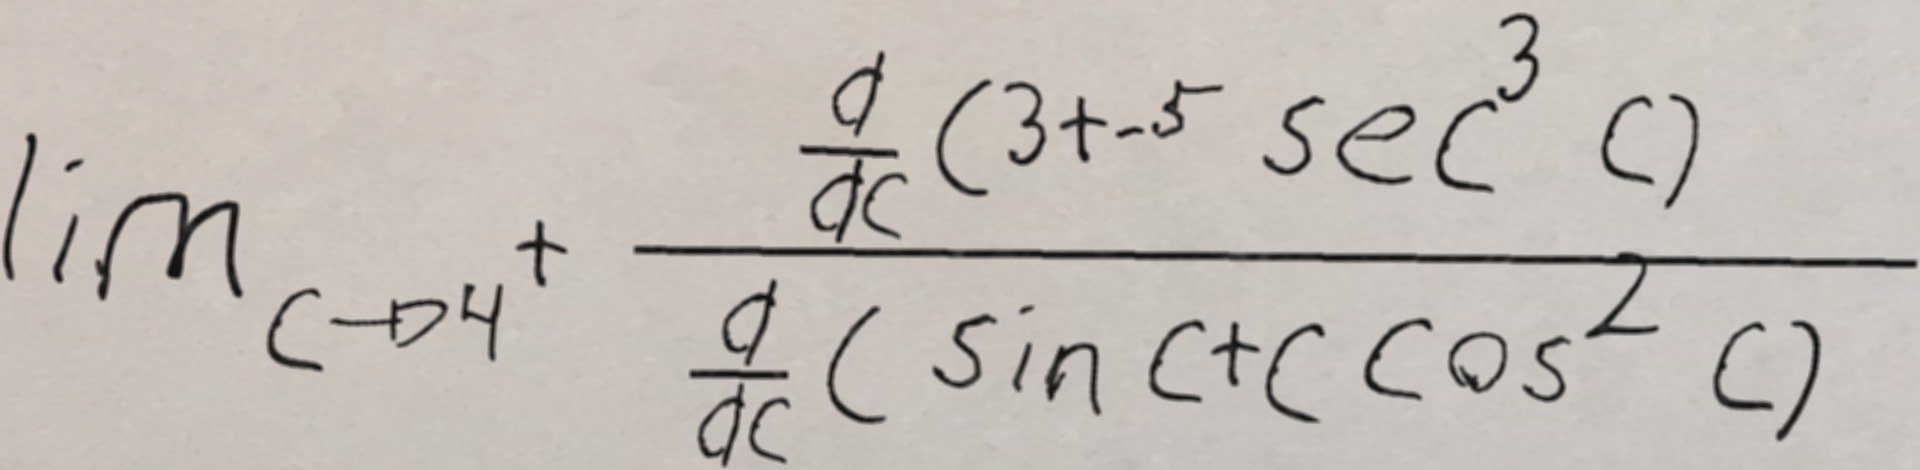 \lim_{c \to 4^+} \frac{\frac{d}{dc}(3+-5 \sec^3 c)}{\frac{d}{dc}(\sin c+c \cos^2 c)}